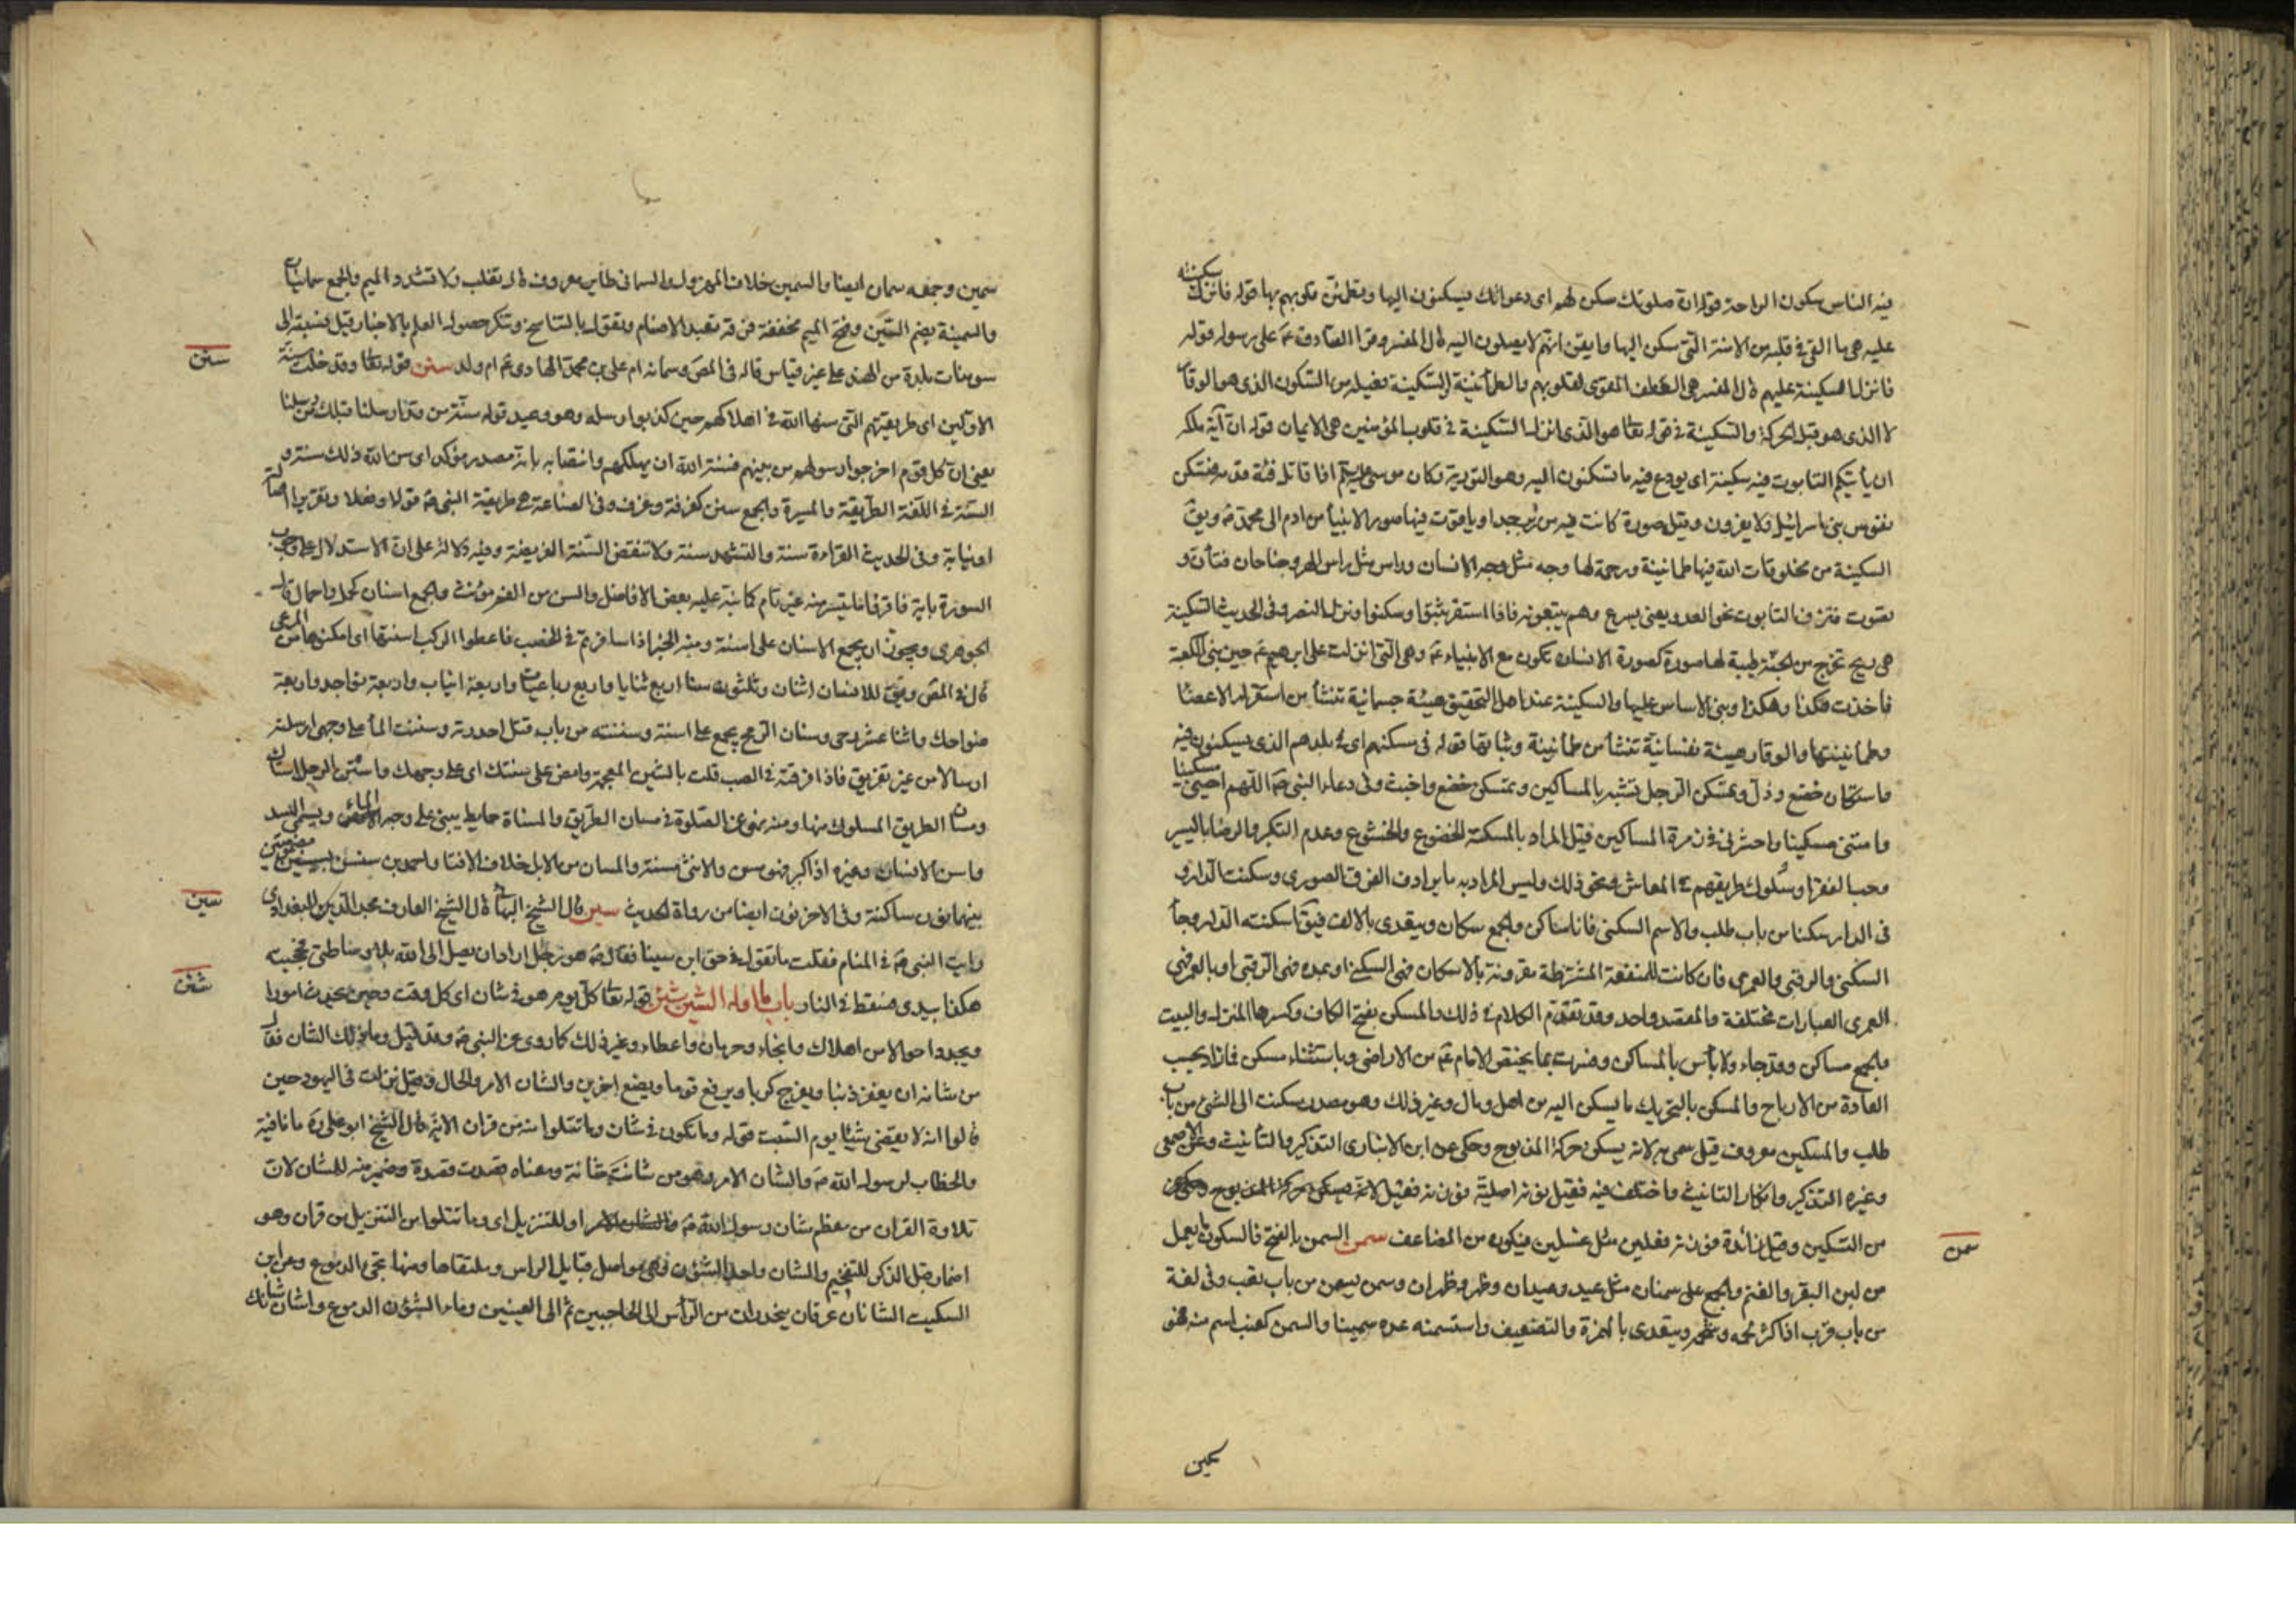 فيه الناس سكون الراحة قوله ان صلوتك سكن لهم اى دعواتك يسكنون اليها وتطمئن قلوبهم بها قوله فانزل الله سكينته
عليه هى ما القى فى قلبه من الامنة التى سكن اليها وايقن انهم لا يصلون اليه قال المفسر وقرا الصادق ع على رسوله قوله
فانزل السكينة عليهم قال المفسر هى اللطف المقوى لقلوبهم والطمأنينة والسكينة فعيلة من السكون الذى هو الوقار
لا الذى هو قبل الحركة والسكينة فى قوله تعا هو الذى انزل السكينة فى قلوب المؤمنين هى الايمان قوله ان آية ملكه
ان يأتيكم التابوت فيه سكينة اى يودع فيه ما تسكنون اليه وهو التورية وكان موسى ع اذا قاتل فئة قدمه فتسكن
نفوس بنى اسرائيل ولا يفرون وقيل صورة كانت فيه من زبرجد او ياقوت فيها صور الانبيا من ادم الى محمد ص ويق
السكينة من مخلوقات الله فيها طمانينة ورحمة لها وجه مثل وجه الانسان وراس مثل راس الهر وجناحان فتأن و
يصوت فتزف التابوت نحو العدو يعنى يسرع وهم يتبعونه فاذا استقر ثبتوا وسكنوا ونزل النصر وفى الحديث السكينة
هى ريح تخرج من الجنة طيبة لها صورة كصورة الانسان تكون مع الانبياء ع وهى التى انزلت على ابرهيم ع حين بنى الكعبة
فاخذت هكذا وهكذا وبنى الاساس عليها والسكينة عند اهل التحقيق هيئة جسمانية تنشأ من استقرار الاعضا
وطمانينتها والوقار هيئة نفسانية تنشأ من طمأنينة وثباتها قوله فى مسكنهم اى فى بلدهم الذى يسكنون فيه
واستكان خضع وذل وتمسكن الرجل تشبه بالمساكين وتمسكن خضع واخبت وفى دعاء النبى ص اللهم احينى مسكينا
وامتنى مسكينا واحشرنى فى زمرة المساكين قيل المراد بالمسكنة الخضوع والخشوع وعدم التكبر والرضا باليسير
وحب الفقرا وسلوك طريقهم فى المعاش ونحو ذلك وليس المراد به ما يرادف الفقر الصورى وسكنت الدار و
فى الدار سكنا من باب طلب والاسم السكنى فانا ساكن والجمع سكان ويتعدى بالالف فيق اسكنته الدار وجأ
السكنى والرقبى والعمرى فان كانت المنفعة المشترطة مقرونة بالاسكان فهى السكنى او بمدة فهى الرقبى او بالعمر فهى
العمرى العبارات مختلفة والمقصد واحد وقد تقدم الكلام فى ذلك والمسكن بفتح الكاف وكسرها المنزل والبيت
والجمع مساكن وقد جاء ولا بأس بالمساكن وفسرت بما يختص الامام ع من الاراضى وباستثناء مسكن فازاد بحسب
العادة من الارباح والمسكن بالتحريك ما يسكن اليه من اهل ومال وغير ذلك وهو مصدر سكنت الى الشئ من باب
طلب والسكين معروف قيل سمى به لانه يسكن حركة المذبوح وحكى عن ابن الانبارى التذكير والتأنيث وعن الاصمعى
وغيره التذكير وانكار التانيث واختلف فيه فقيل نونه اصلية فوزنه فعيل
من التسكين وقيل زائدة فوزنه فعلين مثل غسلين فيكون من المضاعف سمن السمن بالفتح فالسكون ما يعمل
من لبن البقر والغنم والجمع على سمنان مثل عبد وعبدان وظهر وظهران وسمن يسمن من باب تعب وفى لغة
من باب قرب اذا كثر لحمه وشحمه ويتعدى بالهمزة والتضعيف واستسمنه عده سمينا والسمن كعنب اسم منه فهو
سمن
سمين
سمين وجمعه سمان ايضا والسمين خلاف المهزول والسمانى طاير معروف قال ثعلب ولا تشدد الميم والجمع سمانيات
والسمنية بضم السين وفتح الميم مخففة فرقة تعبد الاصنام وتقول بالتناسخ وتنكر حصول العلم بالاخبار قيل نسبة الى
سومنات بلدة من الهند على غير قياس قاله فى المص وسمانه ام على بن محمد الهادى ع ام ولد سنن قوله تعا وقد خلت سنة
الاولين اى طريقتهم التى سنها الله فى اهلاكهم حين كذبوا رسله وهو وعيد قوله سنة من قد ارسلنا قبلك من رسلنا
يعنى ان كل قوم اخرجوا رسولهم من بينهم فسنة الله ان يهلكهم وانتصابه بانه مصدر مؤكد اى سن الله ذلك سنة و
السنة فى اللغة الطريقة والسيرة والجمع سنن كغرفة وغرف وفى الصناعة هى طريقة النبى ص قولا وفعلا وتقريرا اصالة
او نيابة وفى الحديث القراءة سنة والتشهد سنة ولا تنقض السنة الفريضة وفيه دلالة على ان الاستدلال على وجوب
السورة باية فاقرؤا ما تيسر منه غير تام كما نبه عليه بعض الافاضل والسن من الفم مؤنث والجمع اسنان كحمل واحمال قال
الجوهرى ويجوز ان يجمع الاسنان على اسنة ومنه الخبر اذا سافرتم فى الخصب فاعطوا الركب اسنتها اى امكنوها من المرعى
قال فى المص ويق للانسان اثنان وثلثون سنا اربع ثنايا واربع رباعيات واربعة انياب واربعة نواجذ واربعة
ضواحك واثنا عشر رحى وسنان الرمح يجمع على اسنة وسننته من باب قتل احددته وسننت المأ على وجهى ارسلته
ارسالا من غير تفريق فاذا فرقته فى الصب قلت بالشين المعجمة وامض على سننك اى على وجهك واستن الرجل استنان
ومسان الطريق المسلوك منها ومنه نهى عن الصلوة فى مسان الطريق والمسناة حايط يبنى على وجه الماء ويسمى السد
واسن الانسان وغيره اذا كبر فهو مسن والانثى مسنة والمسان من الابل خلاف الافتا واحمد بن سنسن بسينين مضمومتين
بينهما نون ساكنة وفى الاخر نون ايضا من رواة الحديث سين قال الشيخ البهائى قال الشيخ العارف مجد الدين البغدادى
رايت النبى ص فى المنام فقلت ما تقول فى حق ابن سينا فقال ص هو رجل اراد ان يصل الى الله بلا وساطتى فحجبته
هكذا بيدى فسقط فى النار باب ما اوله الشين شئن قوله تعا كل يوم هو فى شان اى كل وقت وحين يحدث امورا
ويجدد احوالا من اهلاك وانجاء وحرمان واعطاء وغير ذلك كما روى عن النبى ص وقد قيل وما ذلك الشان فقال
من شانه ان يغفر ذنبا ويفرج كربا ويرفع قوما ويضع اخرين والشان الامر والحال وقيل نزلت فى اليهود حين
قالوا انه لا يقضى شيئا يوم السبت قوله وما تكون فى شان وما تتلوا منه من قران الاية قال الشيخ ابو على ره ما نافية
والخطاب لرسول الله ص والشان الامر وهو من شانت شانه ومعناه قصدت قصده وضمير منه للشان لان
تلاوة القران من معظم شان رسول الله ص او للتنزيل اى وما تتلوا من التنزيل من قران وهو
اضمار قبل الذكر للتفخيم والشان واحد الشؤن وهى مواصل قبايل الراس وملتقاها ومنها تجى الدموع وعن ابن
السكيت الشانان عرقان ينحدران من الرأس الى الحاجبين ثم الى العينين وماء الشؤن الدموع واشان شانك
سنن
سين
شئن